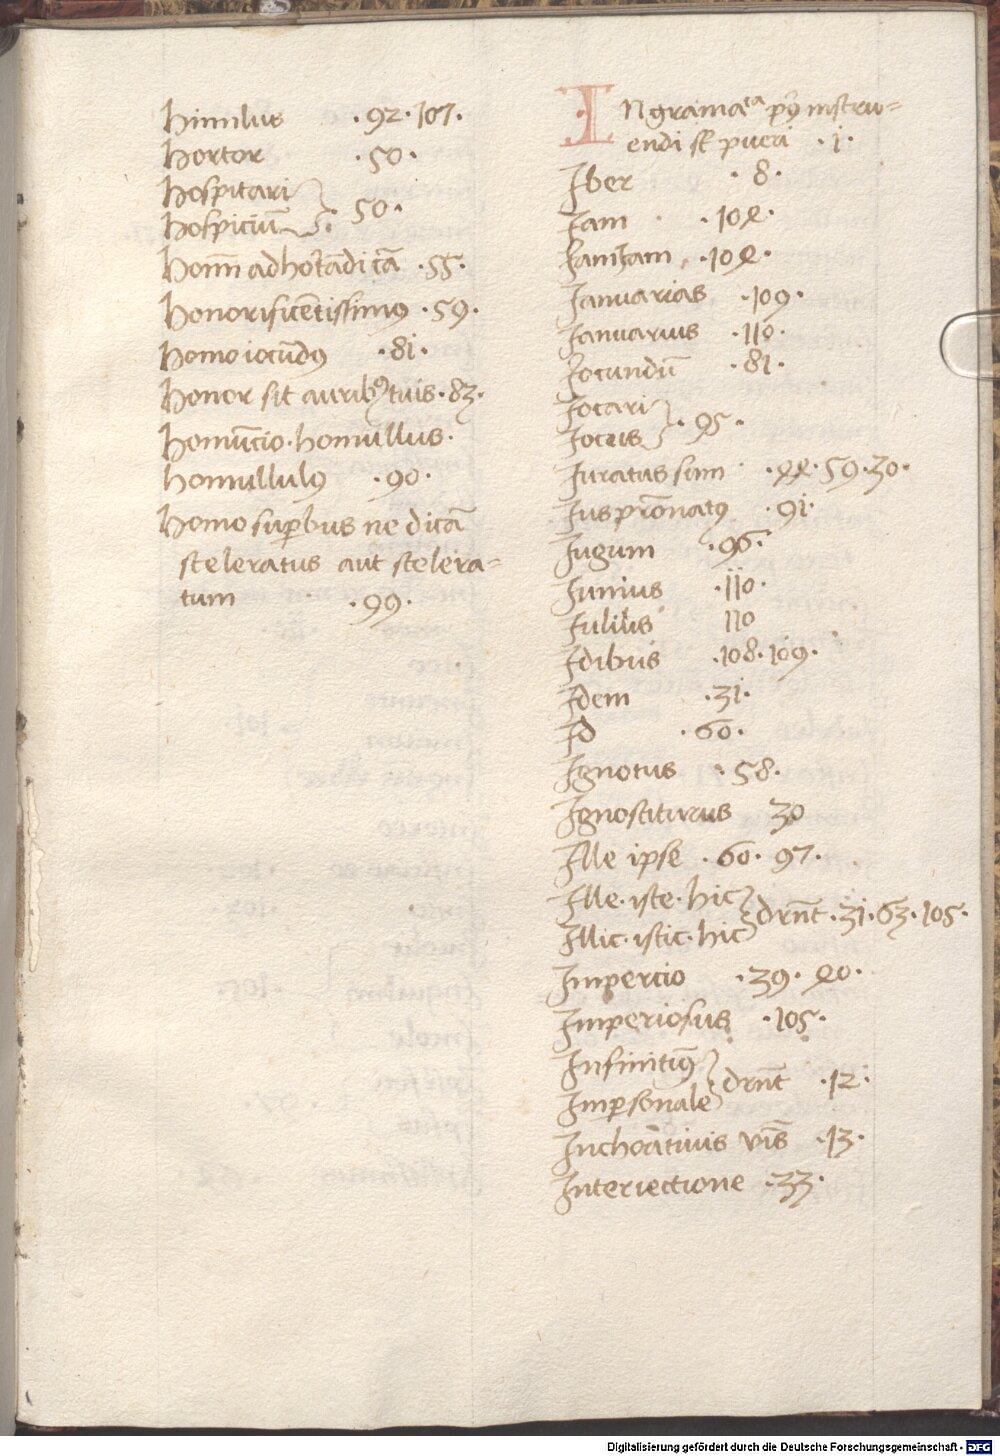 hinnulus .92.107.
hortor .50.
hospitari
hospiciū 50.
Honorificētissimꝰ .59.
homo iocūdꝰ .81.
honor sit auribꝰ tuis .83.
homūcio. homullus.
homullulꝰ .90.
homo suꝑbus ne dicā
sceleratus aut scelera=
tum .99.
IN gramaᶜᵃ instru=
endi st pueri .1.
Iber .8.
Iam .10ꝭ.
Ianuarias .109.
Ianuarius .110.
Iocundū .81.
Iocari
Iocus .95.
Iuratus sum .59.30.
Ius pꝛonatꝰ .91.
Iugum .96.
Iunius .110.
Iulius 110
Idibus .108.109.
Idem .31.
Id .60.
Ignotus .58.
Ignosciturus 30
Ille ipse .60. 97.
Ille. iste. hic
Illic. istic. hic drn̄t .31.63.105.
Impercio .39.
Imperiosus .105.
Infinitiuꝰ
Imꝑsonale drn̄t .12.
Inchoatiuis v̄bis .13.
Interiectione .33.
Digitalisierung gefördert durch die Deutsche Forschungsgemeinschaft - DFG